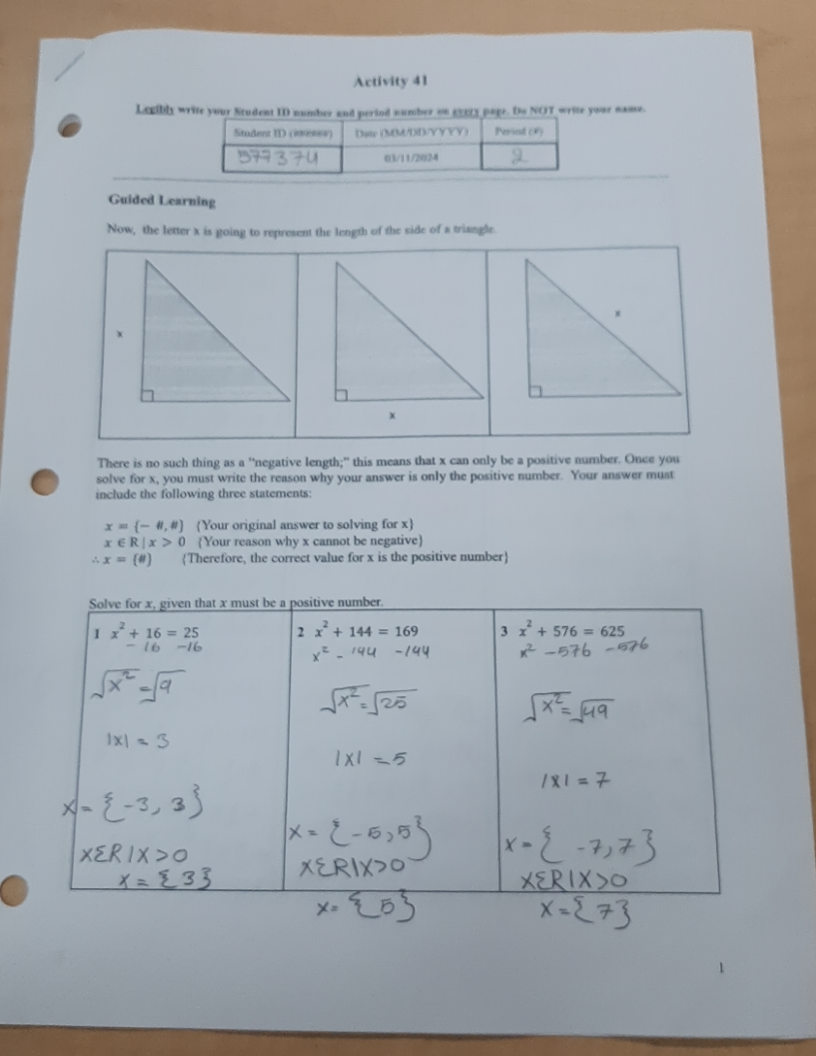 Activity 41
Legibly write your Student ID number and period number on every page. Do NOT write your name.
Student ID (######) Date (MM/DD/YYYY) Period (#)
577374 03/11/2024 2
Guided Learning
Now, the letter x is going to represent the length of the side of a triangle.
x
x
x
There is no such thing as a "negative length;" this means that x can only be a positive number. Once you
solve for x, you must write the reason why your answer is only the positive number. Your answer must
include the following three statements:
x = {− #, #} {Your original answer to solving for x}
x ∈ R | x > 0 {Your reason why x cannot be negative}
∴ x = {#} {Therefore, the correct value for x is the positive number}
Solve for x, given that x must be a positive number.
1 x² + 16 = 25
- 16 -16
√x² = √9
|x| = 3
x = {-3, 3}
XƐR|X>0
x = {3}
2 x² + 144 = 169
x² - 144 -144
√x² = √25
|x| = 5
x = {-5, 5}
XƐR|X>0
x = {5}
3 x² + 576 = 625
x² -576 -576
√x² = √49
|x| = 7
x = {-7, 7}
XƐR|X>0
x = {7}
1